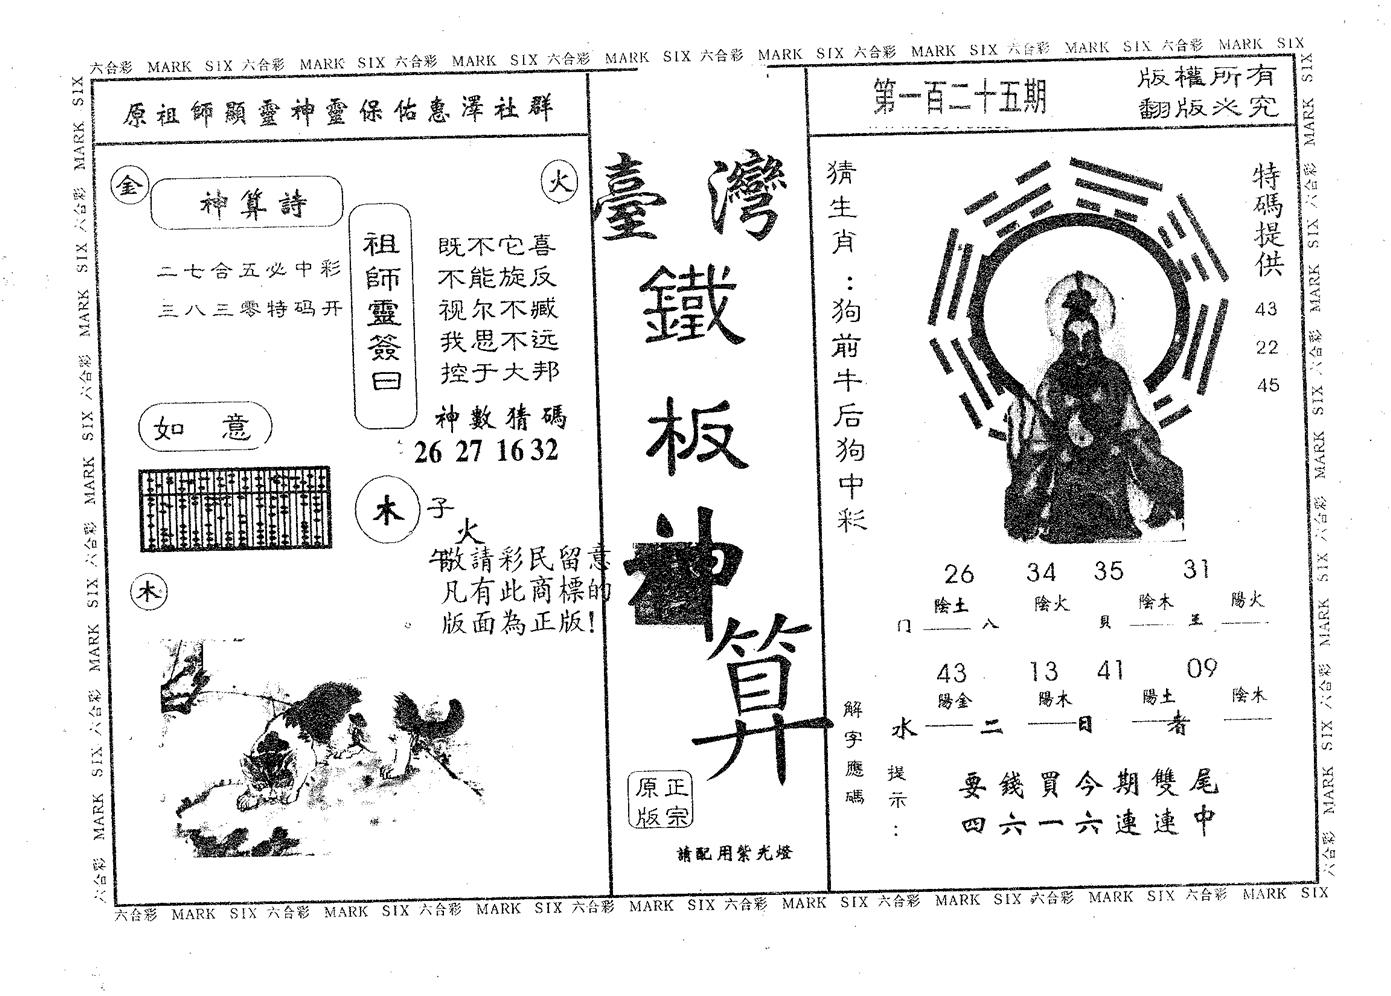 六合彩 MARK SIX 六合彩 MARK SIX 六合彩 MARK SIX 六合彩 MARK SIX 六合彩 MARK SIX 六合彩 MARK SIX 六合彩 MARK SIX 六合彩 MARK SIX
原祖師顯靈神靈保佑惠澤社群
第一百二十五期
版權所有
翻版必究
金
神算詩
火
二七合五必中彩
三八三零特码开
祖師靈簽曰
既不它喜
不能旋反
视尔不臧
我思不远
控于大邦
神數猜碼
26 27 16 32
如意
木
子
火
午
敬請彩民留意
凡有此商標的
版面為正版!
木
臺灣
鐵板神算
正宗
原版
請配用紫光燈
猜生肖:狗前牛后狗中彩
特碼提供
43
22
45
26 34 35 31
陰土 陰火 陰木 陽火
门 八 貝 王
43 13 41 09
陽金 陽木 陽土 陰木
水 二 日 者
解字應碼
提示:
要錢買今期雙尾
四六一六連連中
六合彩 MARK SIX 六合彩 MARK SIX 六合彩 MARK SIX 六合彩 MARK SIX 六合彩 MARK SIX 六合彩 MARK SIX 六合彩 MARK SIX 六合彩 MARK SIX